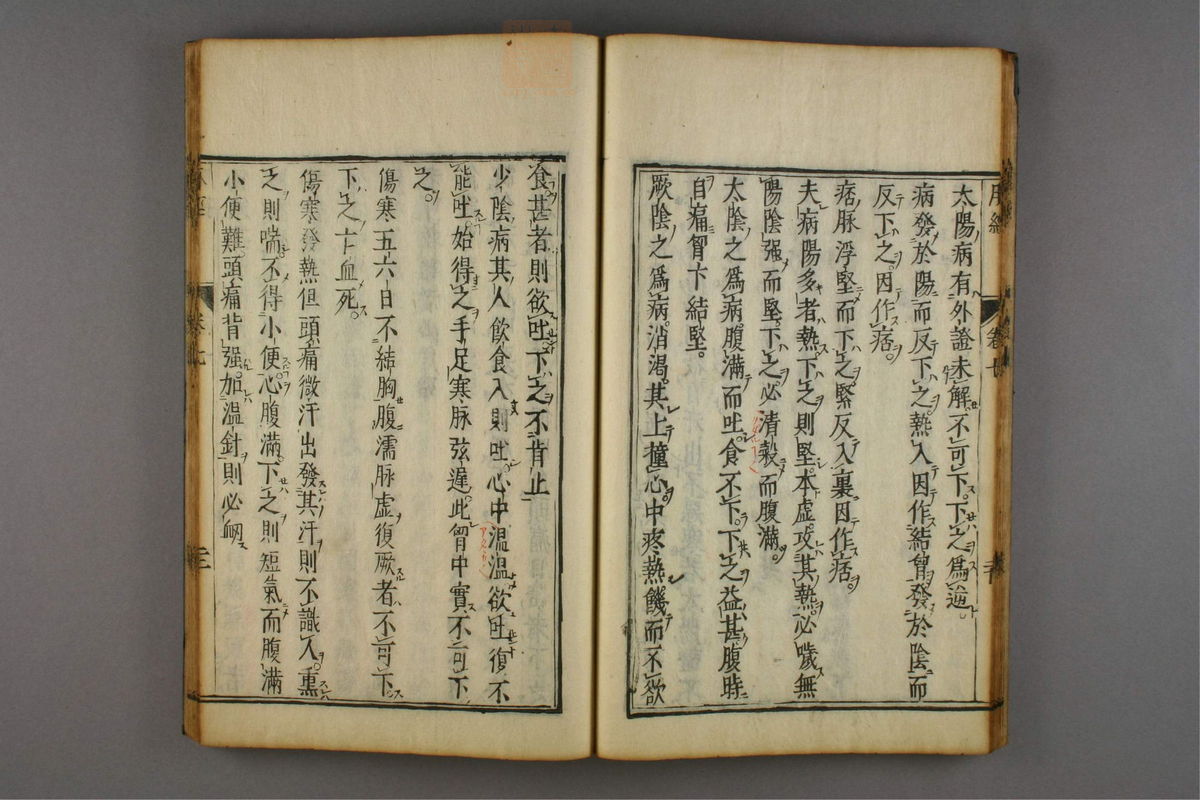 脉經
卷七
太陽病有外證未解不可下下之爲逆
病發於陽而反下之熱入因作結胷發於陰而
反下之因作痞
痞脉浮堅而下之緊反入裏因作痞
夫病陽多者熱下之則堅本虛攻其熱必噦無
陽陰强而堅下之必清穀而腹滿
太陰之爲病腹滿而吐食不下下之益甚腹時
自痛胷下結堅
厥陰之爲病消渴其上撞心中疼熱饑而不欲
食甚者則欲吐下之不肯止
少陰病其人飲食入則吐心中温温欲吐復不
能吐始得之手足寒脉弦遲此胷中實不可下
之
傷寒五六日不結胸腹濡脉虛復厥者不可下
下之亡血死
傷寒發熱但頭痛微汗出發其汗則不識人熏
之則喘不得小便心腹滿下之則短氣而腹滿
小便難頭痛背强加温針則必衂
卷七